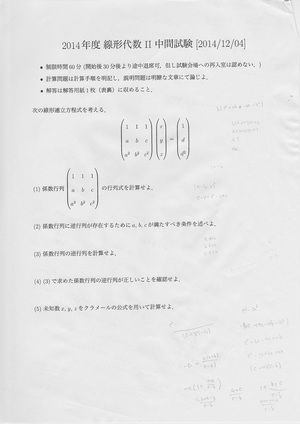 2014年度 線形代数 II 中間試験 [2014/12/04]
• 制限時間 60 分 (開始後 30 分後より途中退席可, 但し試験会場への再入室は認めない. )
• 計算問題は計算手順を明記し, 証明問題は明瞭な文章にて論じよ.
• 解答は解答用紙 1 枚 (表裏) に収めること.
次の線形連立方程式を考える.
1 1 1 x 1
a b c y = d
a² b² c² z d²
1 1 1
(1) 係数行列 a b c の行列式を計算せよ.
a² b² c²
(2) 係数行列に逆行列が存在するために a, b, c が満たすべき条件を述べよ.
(3) 係数行列の逆行列を計算せよ.
(4) (3) で求めた係数行列の逆行列が正しいことを確認せよ.
(5) 未知数 x, y, z をクラメールの公式を用いて計算せよ.